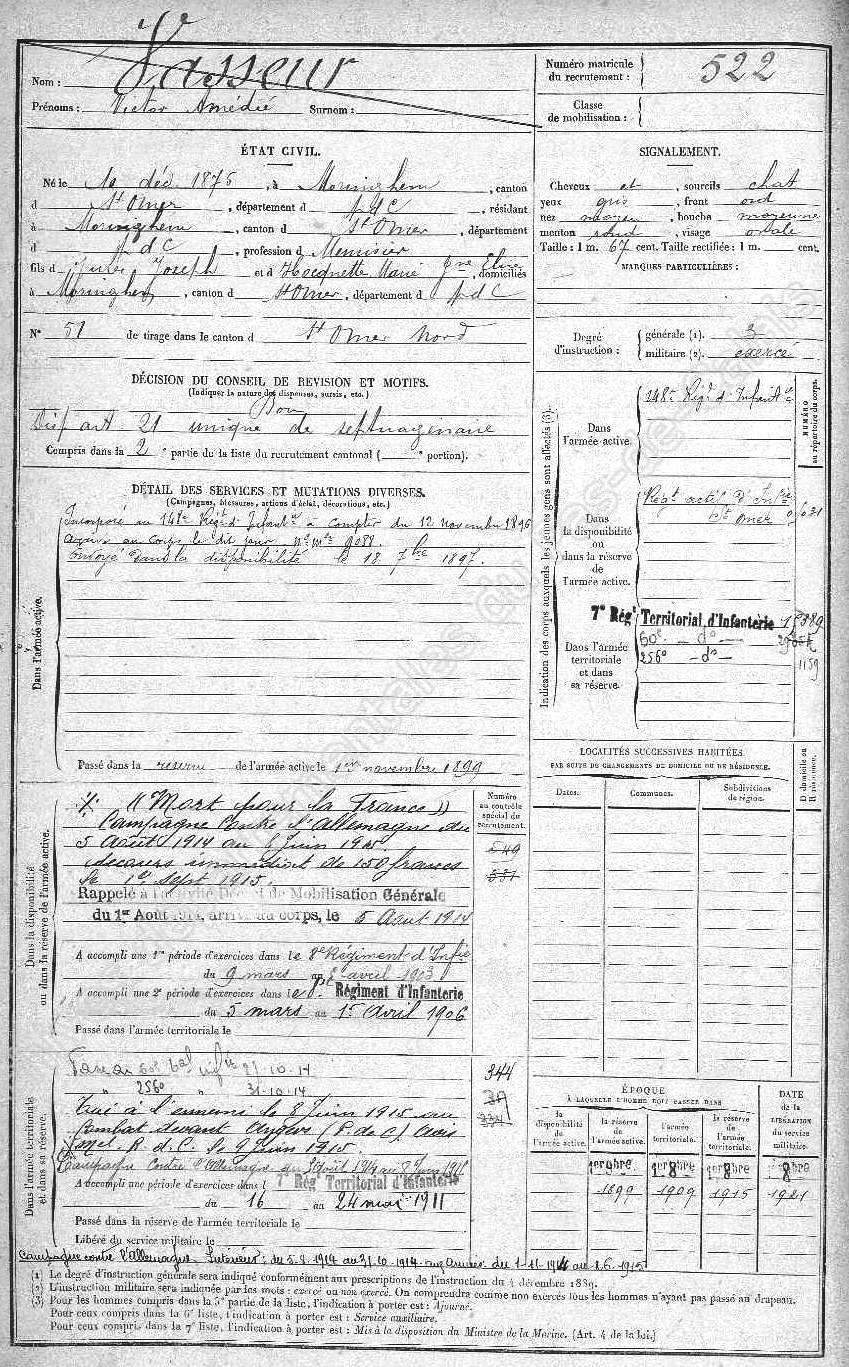 Nom : Vasseur
Prénoms : Victor Amédié Surnom :
Numéro matricule du recrutement : 522
Classe de mobilisation :
ÉTAT CIVIL.
Né le 10 déc. 1875, à Moringhem, canton
d St Omer, département d p d C, résidant
à Moringhem, canton d St Omer, département
d p d C, profession d Menuisier
fils d Joseph et d Hocquette Marie Jne Elise domiciliés
à Moringhem, canton d St Omer, département d p d C
N° 51 de tirage dans le canton d St Omer Nord
SIGNALEMENT.
Cheveux et, sourcils chat
yeux gris, front ord
nez moyen, bouche moyenne
menton rond, visage ovale
Taille : 1 m. 67 cent. Taille rectifiée : 1 m. cent.
MARQUES PARTICULIÈRES :
Degré d'instruction : générale (1). 3
militaire (2). exercé
DÉCISION DU CONSEIL DE REVISION ET MOTIFS.
(Indiquer la nature des dispenses, sursis, etc.)
Bon
Disp art 21 unique de septuagénaire
Compris dans la 2e partie de la liste du recrutement cantonal ( portion).
DÉTAIL DES SERVICES ET MUTATIONS DIVERSES.
(Campagnes, blessures, actions d'éclat, décorations, etc.)
Dans l'armée active.
Incorporé au 148e Régt d'Infantie à compter du 12 novembre 1896
au corps le dit jour n° mle 9088.
Envoyé dans la disponibilité le 18 7bre 1897.
Passé dans la réserve de l'armée active le 1er novembre 1899
Indication des corps auxquels les jeunes gens sont affectés (3).
NUMÉRO au répertoire du corps.
Dans l'armée active.
148e Régt d'Infantie
Dans la disponibilité ou dans la réserve de l'armée active.
Régt actif d'Infie
St Omer
7e Régt Territorial d'Infanterie
Dans l'armée territoriale et dans sa réserve.
60e — do —
256e — do —
1159
LOCALITÉS SUCCESSIVES HABITÉES.
PAR SUITE DE CHANGEMENTS DE DOMICILE OU DE RÉSIDENCE.
D domicile ou R résidence.
Dates. Communes. Subdivisions de région.
Dans la disponibilité ou dans la réserve de l'armée active.
Numéro au contrôle spécial du recrutement.
((Mort pour la France))
Campagne contre l'Allemagne du
5 Août 1914 au 8 Juin 1915
Secours immédiat de 150 francs
le 1er Sept 1915.
549
551
Rappelé à l'activité Décret de Mobilisation Générale
du 1er Août 1914, arrivé au corps, le 5 Août 1914
A accompli une 1re période d'exercices dans le 8e Régiment d'Infie
du 9 mars au avril 1903
A accompli une 2e période d'exercices dans le 8e Régiment d'Infanterie
du 5 mars au 1er avril 1906
Passé dans l'armée territoriale le
Dans l'armée territoriale et dans sa réserve.
Passé au 60e bat inf 21-10-14
" 256e " 31-10-14
Tué à l'ennemi le 8 Juin 1915 au
combat devant Angres (P. de C)
9 Juin 1915
Campagne contre l'Allemagne du 5 Août 1914 au 8 Juin 1915
A accompli une période d'exercices dans l 7e Régt Territorial d'Infanterie
du 16 au 24 mai 1911
Passé dans la réserve de l'armée territoriale le
Libéré du service militaire le
344
Campagne contre l'allemagne. Intérieur : du 5.8.1914 au 31.10.1914. aux Armées du 1.11.1914 au
ÉPOQUE
À LAQUELLE L'HOMME DOIT PASSER DANS
la disponibilité de l'armée active. la réserve de l'armée active. l'armée territoriale. la réserve de l'armée territoriale.
DATE de la LIBÉRATION du service militaire.
1er 9bre 1er 8bre 1er 8bre 8bre
1899 1909 1915 1921
(1) Le degré d'instruction générale sera indiqué conformément aux prescriptions de l'instruction du 4 décembre 1889.
(2) L'instruction militaire sera indiquée par les mots : exercé ou non exercé. On comprendra comme non exercés tous les hommes n'ayant pas passé au drapeau.
(3) Pour les hommes compris dans la 5e partie de la liste, l'indication à porter est : Ajourné.
Pour ceux compris dans la 6e liste, l'indication à porter est : Service auxiliaire.
Pour ceux compris dans la 7e liste, l'indication à porter est : Mis à la disposition du Ministre de la Marine. (Art. 4 de la loi.)